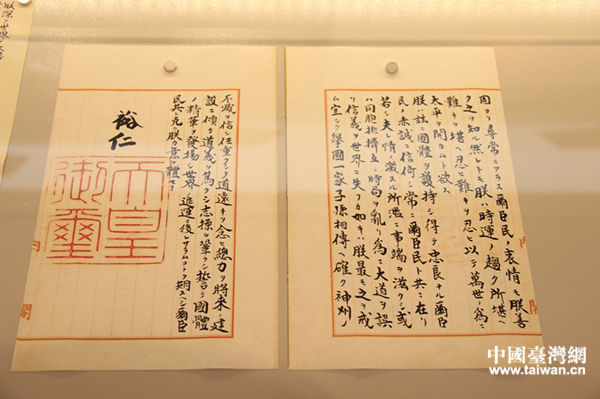 固ヨリ尋常ニアラス爾臣民ノ衷情モ朕善
ク之ヲ知ル然レトモ朕ハ時運ノ趨ク所堪ヘ
難キヲ堪ヘ忍ヒ難キヲ忍ヒ以テ萬世ノ爲ニ
太平ヲ開カムト欲ス
朕ハ茲ニ國體ヲ護持シ得テ忠良ナル爾臣
民ノ赤誠ニ信倚シ常ニ爾臣民ト共ニ在リ
若シ夫レ情ノ激スル所濫ニ事端ヲ滋クシ或
ハ同胞排擠互ニ時局ヲ亂リ爲ニ大道ヲ誤
リ信義ヲ世界ニ失フカ如キハ朕最モ之ヲ戒
ム宜シク擧國一家子孫相傳ヘ確ク神州ノ
不滅ヲ信シ任重クシテ道遠キヲ念ヒ總力ヲ將來ノ建
設ニ傾ケ道義ヲ篤クシ志操ヲ鞏クシ誓テ國體
ノ精華ヲ發揚シ世界ノ進運ニ後レサラムコトヲ期スヘシ爾臣
民其レ克ク朕カ意ヲ體セヨ
裕仁
天皇
御璽
中國臺灣網
www.taiwan.cn